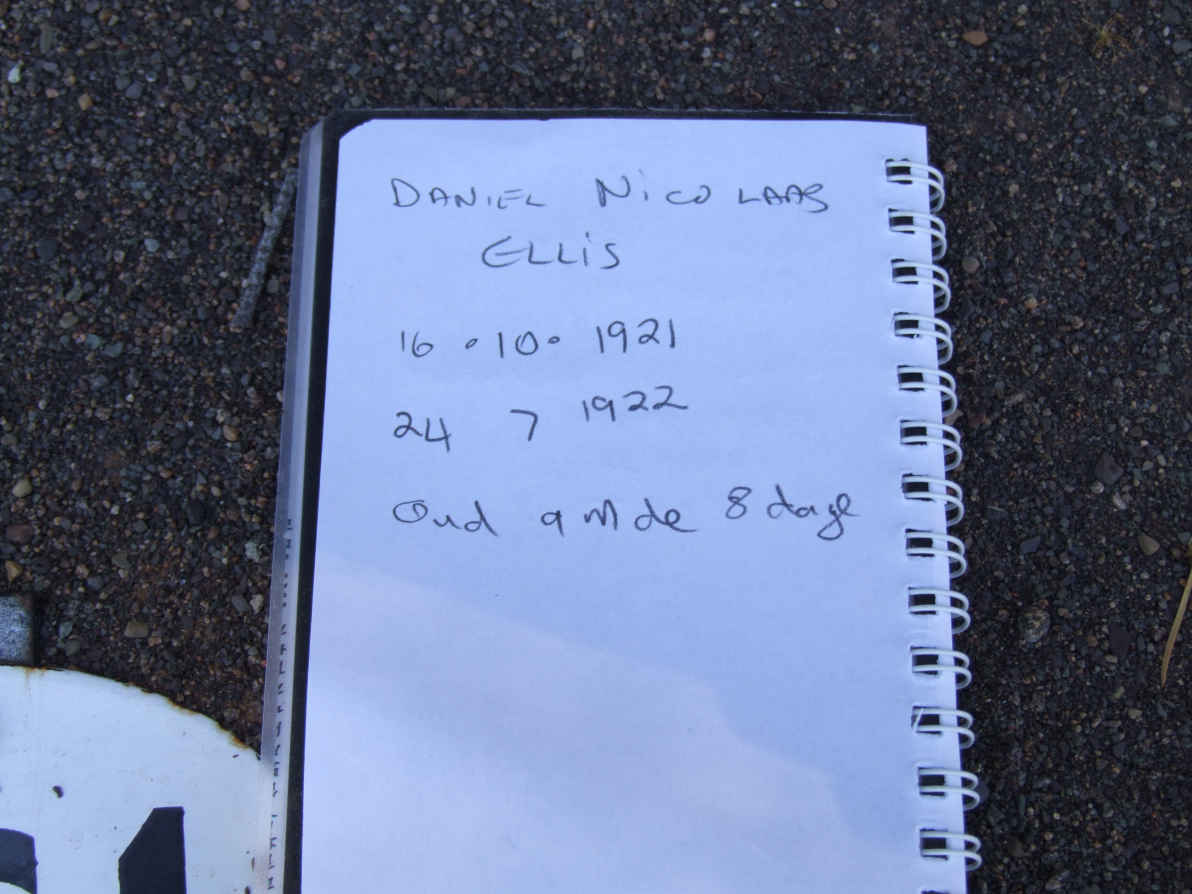 DANIEL NICOLAAS
ELLIS
16.10.1921
24 7 1922
Oud 9 Mde 8 dage